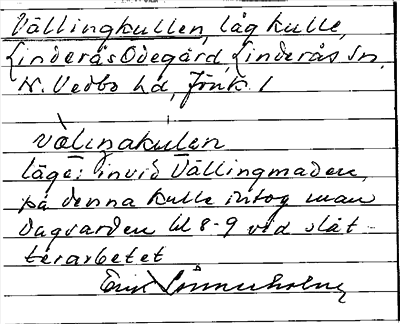 Vällingkullen, låg kulle,
Linderås Ödegård, Linderås sn,
N. Vedbo hd, Jönk. l
vählinakulen
läge: invid Vällingmaden,
på denna kulle intog man
dagvarden kl 8-9 vid slåt-
terarbetet
Erik